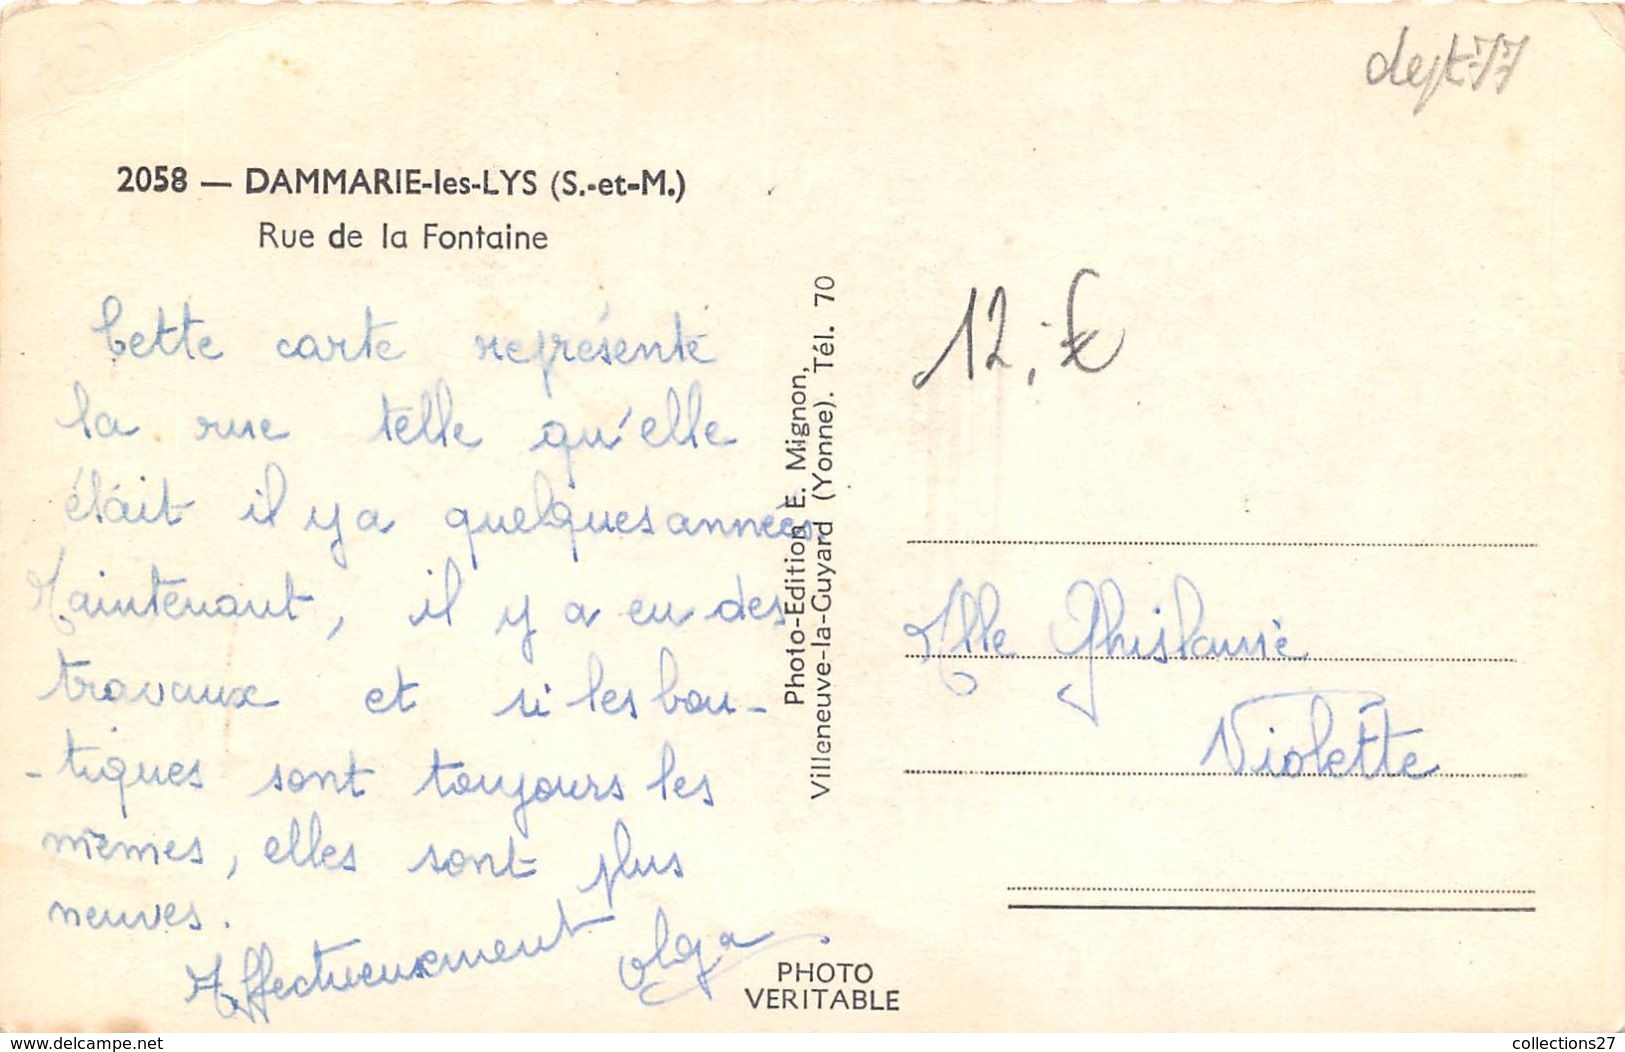 dept 77
2058 — DAMMARIE-les-LYS (S.-et-M.)
Rue de la Fontaine
Cette carte représente
la rue telle qu'elle
était il y a quelques années.
Maintenant, il y a eu des
travaux et si les bou-
-tiques sont toujours les
mêmes, elles sont plus
neuves.
Affectueusement Olga
Photo-Edition E. Mignon,
Villeneuve-la-Guyard (Yonne). Tél. 70
12,-€
Mlle Ghislaine
Violette
PHOTO
VERITABLE
www.delcampe.net
collections27